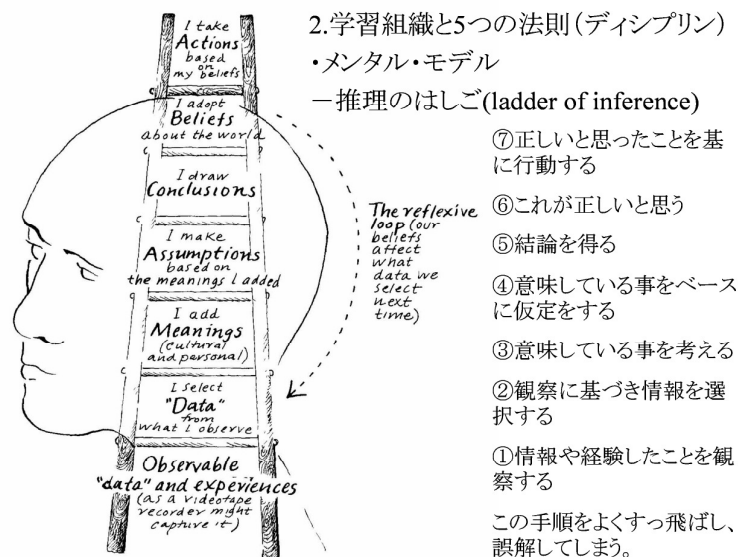 2.学習組織と5つの法則(ディシプリン)
・メンタル・モデル
－推理のはしご(ladder of inference)
I take
Actions
based
on
my beliefs
I adopt
Beliefs
about the world
I draw
Conclusions
I make
Assumptions
based on
the meanings I added
I add
Meanings
(cultural
and personal)
I select
"Data"
from
what I observe
Observable
"data" and experiences
(as a videotape
recorder might
capture it)
The reflexive
loop (our
beliefs
affect
what
data we
select
next
time)
⑦正しいと思ったことを基
に行動する
⑥これが正しいと思う
⑤結論を得る
④意味している事をベース
に仮定をする
③意味している事を考える
②観察に基づき情報を選
択する
①情報や経験したことを観
察する
この手順をよくすっ飛ばし、
誤解してしまう。